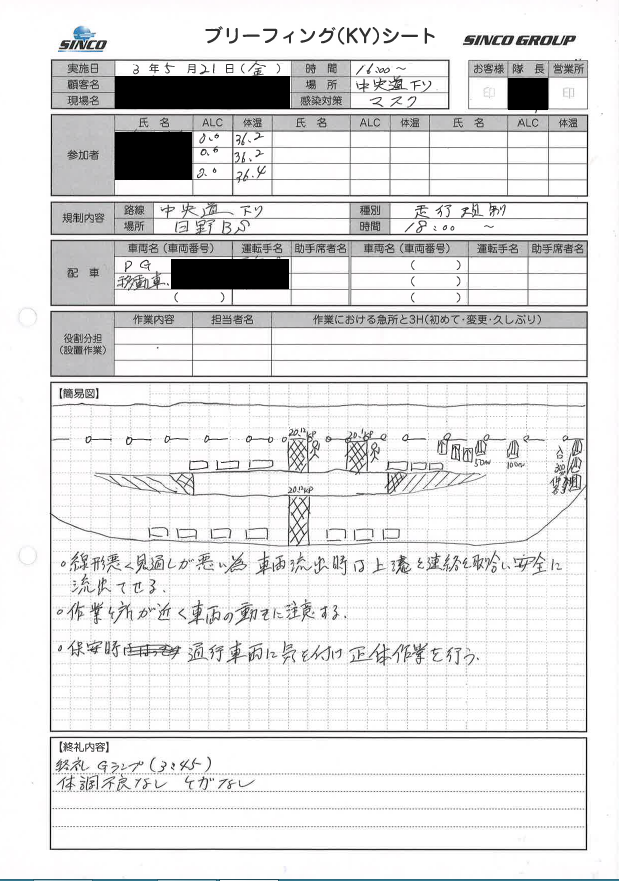 SINCO
ブリーフィング(KY)シート
SINCO GROUP
実施日 3年5月21日(金) 時間 16:00～
お客様 隊長 営業所
顧客名 場所 中央道下り
印 印
現場名 感染対策 マスク
氏名 ALC 体温 氏名 ALC 体温 氏名 ALC 体温
参加者
0.0 36.2
0.0 36.2
0.0 36.4
規制内容
路線 中央道下り 種別 走行規制
場所 日野BS 時間 18:00 ～
配車
車両名(車両番号) 運転手名 助手席者名 車両名(車両番号) 運転手名 助手席者名
PG ( )
移動車 ( )
( ) ( )
役割分担(設置作業)
作業内容 担当者名 作業における急所と3H(初めて・変更・久しぶり)
【簡易図】
20.1KP
20.1KP
50m 100m
。線形悪く見通しが悪い為 車両流出時は上流と連絡を取合い安全に
流出させる.
。作業ヶ所が近く車両の動きに注意する.
。保安時 通行車両に気を付け正体作業を行う.
【終礼内容】
終礼 Gランプ(3:45)
体調不良なし ケガなし